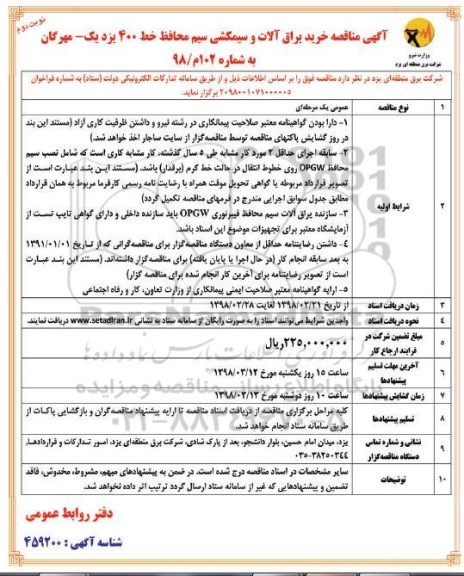 نوبت دوم
آگهی مناقصه خرید یراق آلات و سیمکشی سیم محافظ خط ۴۰۰ یزد یک- مهرگان
به شماره ۱۰۲/م/۹۸
وزارت نیرو
شرکت برق منطقه ای یزد
شرکت برق منطقه‌ای یزد در نظر دارد مناقصه فوق را بر اساس اطلاعات ذیل و از طریق سامانه تدارکات الکترونیکی دولت (ستاد) به شماره فراخوان
۲۰۹۸۰۰۱۰۷۱۰۰۰۰۰۵ برگزار نماید.
۱ نوع مناقصه عمومی یک مرحله‌ای
۲ شرایط اولیه
۱- دارا بودن گواهینامه معتبر صلاحیت پیمانکاری در رشته نیرو و داشتن ظرفیت کاری آزاد (مستند این بند
در روز گشایش پاکتهای مناقصه توسط مناقصه‌گزار از سایت ساجار اخذ خواهد شد.)
۲- سابقه اجرای حداقل ۲ مورد کار مشابه طی ۵ سال گذشته، کار مشابه کاری است که شامل نصب سیم
محافظ OPGW روی خطوط انتقال در حالت خط گرم (برقدار) باشد. (مستند این بند عبارت است از
تصویر قرارداد مربوطه یا گواهی تحویل موقت همراه با رضایت نامه رسمی کارفرما مربوط به همان قرارداد
مطابق جدول سوابق اجرایی مندرج در فرمهای مناقصه تکمیل گردد)
۳- سازنده یراق آلات سیم محافظ فیبرنوری OPGW باید سازنده داخلی و دارای گواهی تایپ تست از
آزمایشگاه معتبر برای تجهیزات موضوع این اسناد باشد.
۴- داشتن رضایتنامه حداقل از معاون دستگاه مناقصه‌گزار برای مناقصه‌گرانی که از تاریخ ۱۳۹۱/۰۱/۰۱
به بعد سابقه انجام کار (در حال اجرا یا پایان یافته) برای مناقصه‌گزار داشته‌اند. (مستند این بند عبارت
است از تصویر رضایتنامه برای آخرین کار انجام شده برای مناقصه گزار)
۵- ارایه گواهینامه معتبر صلاحیت ایمنی پیمانکاری از وزارت تعاون، کار و رفاه اجتماعی
۳ زمان دریافت اسناد از تاریخ ۱۳۹۸/۰۲/۲۱ لغایت ۱۳۹۸/۰۲/۲۸
۴ نحوه دریافت اسناد واجدین شرایط می‌توانند اسناد را به صورت رایگان از سامانه ستاد به نشانی www.setadiran.ir دریافت نمایند.
۵ مبلغ تضمین شرکت در
فرایند ارجاع کار ۲۳۵,۰۰۰,۰۰۰ریال
۶ آخرین مهلت تسلیم
پیشنهادها ساعت ۱۵ روز یکشنبه مورخ ۱۳۹۸/۰۳/۱۲
۷ زمان گشایش پیشنهادها ساعت ۱۰ روز دوشنبه مورخ ۱۳۹۸/۰۳/۱۳
۸ تسلیم پیشنهادها
کلیه مراحل برگزاری مناقصه از دریافت اسناد مناقصه تا ارایه پیشنهاد مناقصه‌گران و بازگشایی پاکات از
طریق سامانه ستاد انجام خواهد شد.
۹ نشانی و شماره تماس
دستگاه مناقصه‌گزار
یزد، میدان امام حسین، بلوار دانشجو، بعد از پارک شادی، شرکت برق منطقه‌ای یزد، امور تدارکات و قراردادها.
۰۳۵-۳۸۲۵۰۳۴۴
۱۰ توضیحات
سایر مشخصات در اسناد مناقصه درج شده است. در ضمن به پیشنهادهای مبهم، مشروط، مخدوش، فاقد
تضمین و پیشنهادهایی که غیر از سامانه ستاد ارسال گردد ترتیب اثر داده نخواهد شد.
دفتر روابط عمومی
شناسه آگهی : ۴۵۹۲۰۰